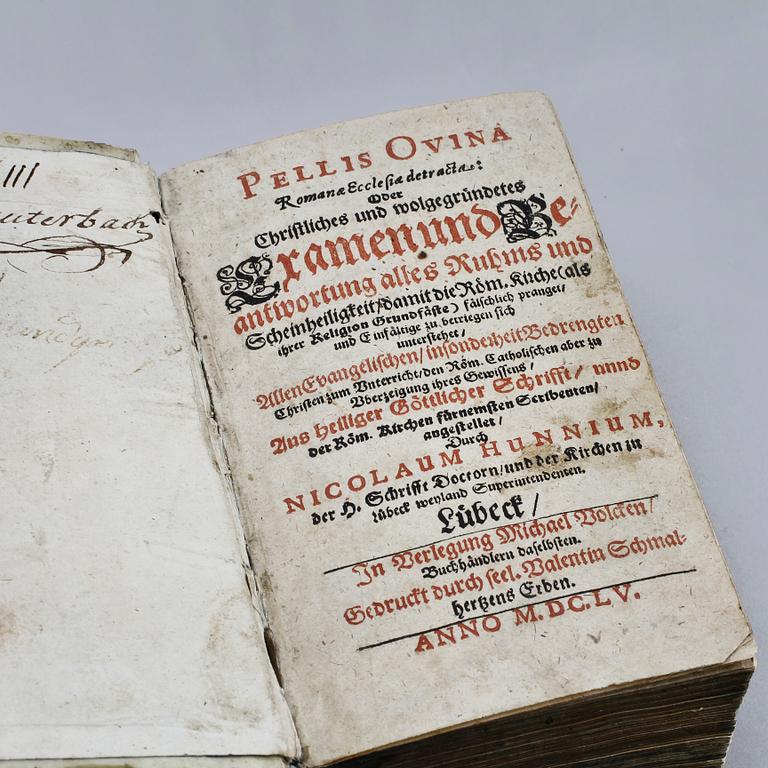 III
uterbach
PELLIS OVINA
Romanæ Ecclesiæ detracta:
Oder
Christliches und wolgegründetes
Examen und Be-
antwortung alles Ruhms und
Scheinheiligkeit/damit die Röm. Kirche (als
ihrer Religion Grundfäste) fälschlich pranget/
und Einfältige zu betriegen sich
unterstehet/
Allen Evangelischen/ insonderheit Bedrengten
Christen zum Unterricht/den Röm. Catholischen aber zu
Vberzeigung ihres Gewissens/
Aus heiliger Göttlicher Schrifft/ unnd
der Röm. Kirchen fürnemsten Scribenten/
angestellet/
Durch
NICOLAUM HUNNIUM,
der H. Schrifft Doctorn/und der Kirchen zu
Lübeck weyland Superintendenten.
Lübeck/
In Verlegung Michael Volcken/
Buchhändlern daselbsten.
Gedruckt durch seel. Valentin Schmal-
hertzens Erben.
ANNO M.DC.LV.